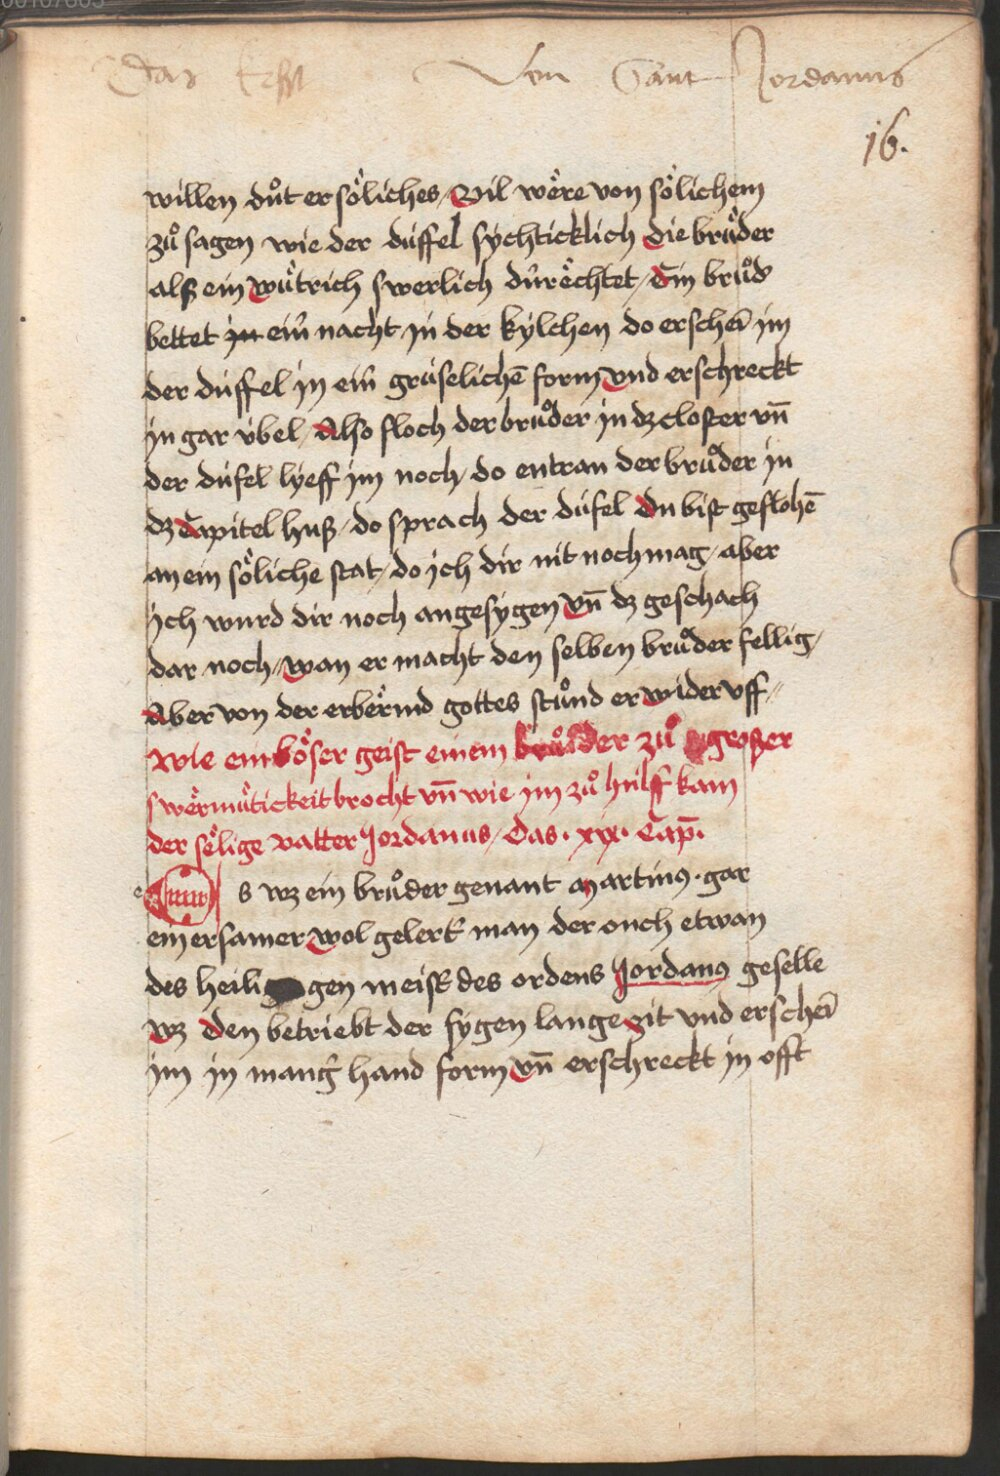 Das Erst Von Sant Jordanus
16.
willen důt er söliches / Vil wëre von sölichem
zů sagen wie der düffel sychticklich die brůder
alß ein wůtrich swerlich dürëchtet / Ein brůd'
bettet in ein̄ nacht in der kylchen do erschei̅ im
der düffel in ein̄ grüselichē form vnd erschreckt
in gar übel / Also floch der brůder in dz closter vn̄
der düfel lyeff im noch / do entran der brůder in
dz Capitel huß / do sprach der düfel Du bist geflohē
an ein söliche stat / do ich dir nit noch mag / aber
ich wurd dir noch angesygen vn̄ dz geschach
dar noch / wan er macht den selben brůder fellig /
Aber von der erbërmd gottes stůnd er wider vff //
Wie ein böser geist einem brůder zů großer
swërmůtickeit brocht vn̄ wie im zů hülff kam
der sëlige vatter Jordanus / Das · xix · Cap̄.
e s wz ein brůder genant Martinꝰ · gar
ein ersamer wol gelert man der ouch etwan
des heiligen meist' des ordens Jordanꝰ geselle
wz Den betriebt der fygen lange zit vnd erschei̅
im in mang' hand form vn̄ erschreckt in offt